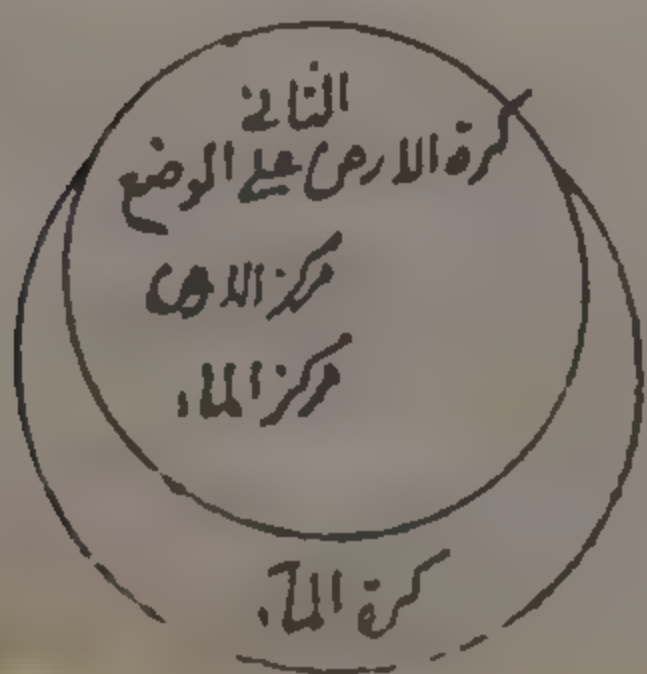 الثاني
كرة الارض على الوضع
مركز الارض
مركز الماء
كرة المآء